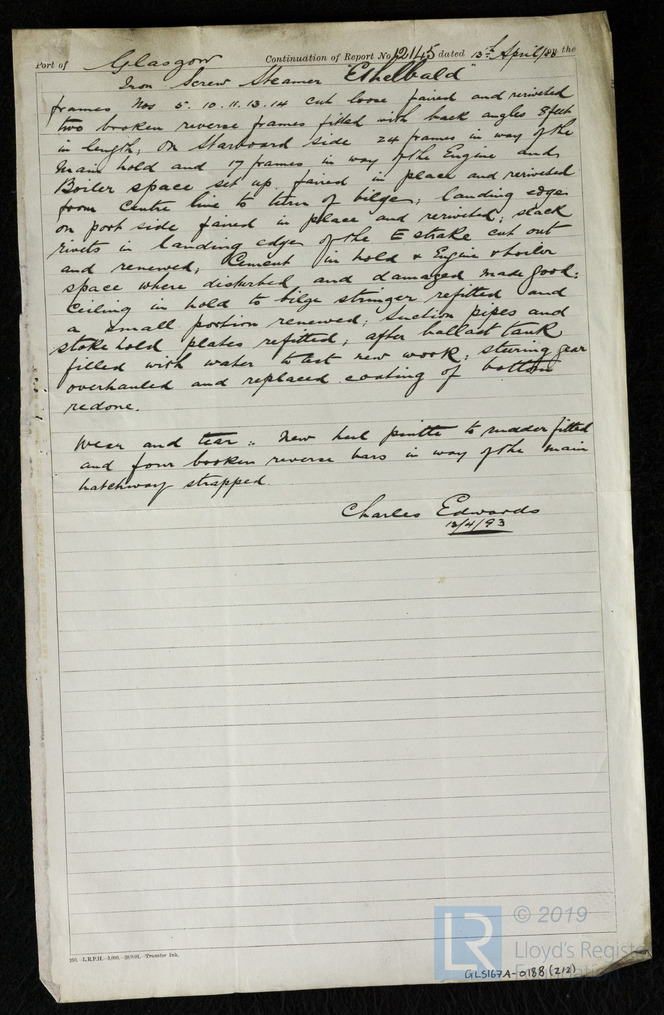 Port of Glasgow Continuation of Report No. 12145 dated 13th April/93 on the
Iron Screw Steamer "Ethelbald"
frames Nos 5. 10. 11. 13. 14 cut loose faired and reriveted
two broken reverse frames fitted with back angles 8 feet
in length; On Starboard side 24 frames in way of the
Main hold and 17 frames in way of the Engine and
Boiler space set up. faired in place and reriveted
from Centre line to turn of bilge; landing edge
on port side faired in place and reriveted; slack
rivets in landing edge of the E strake cut out
and renewed; Cement in hold & Engine & boiler
space where disturbed and damaged made good:
Ceiling in hold to bilge stringer refitted and
a small portion renewed; suction pipes and
stoke hold plates refitted; after ballast tank
filled with water to test new work; steering gear
overhauled and replaced coating of bottom
redone.
Wear and tear: New heel pintle to rudder fitted
and four broken reverse bars in way of the main
hatchway strapped.
Charles Edwards
13/4/93
250.-L.R.P.H.-3,000.- -Transfer Ink.
LR
© 2019
Lloyd's Register
GLS167A-0188 (2/2)